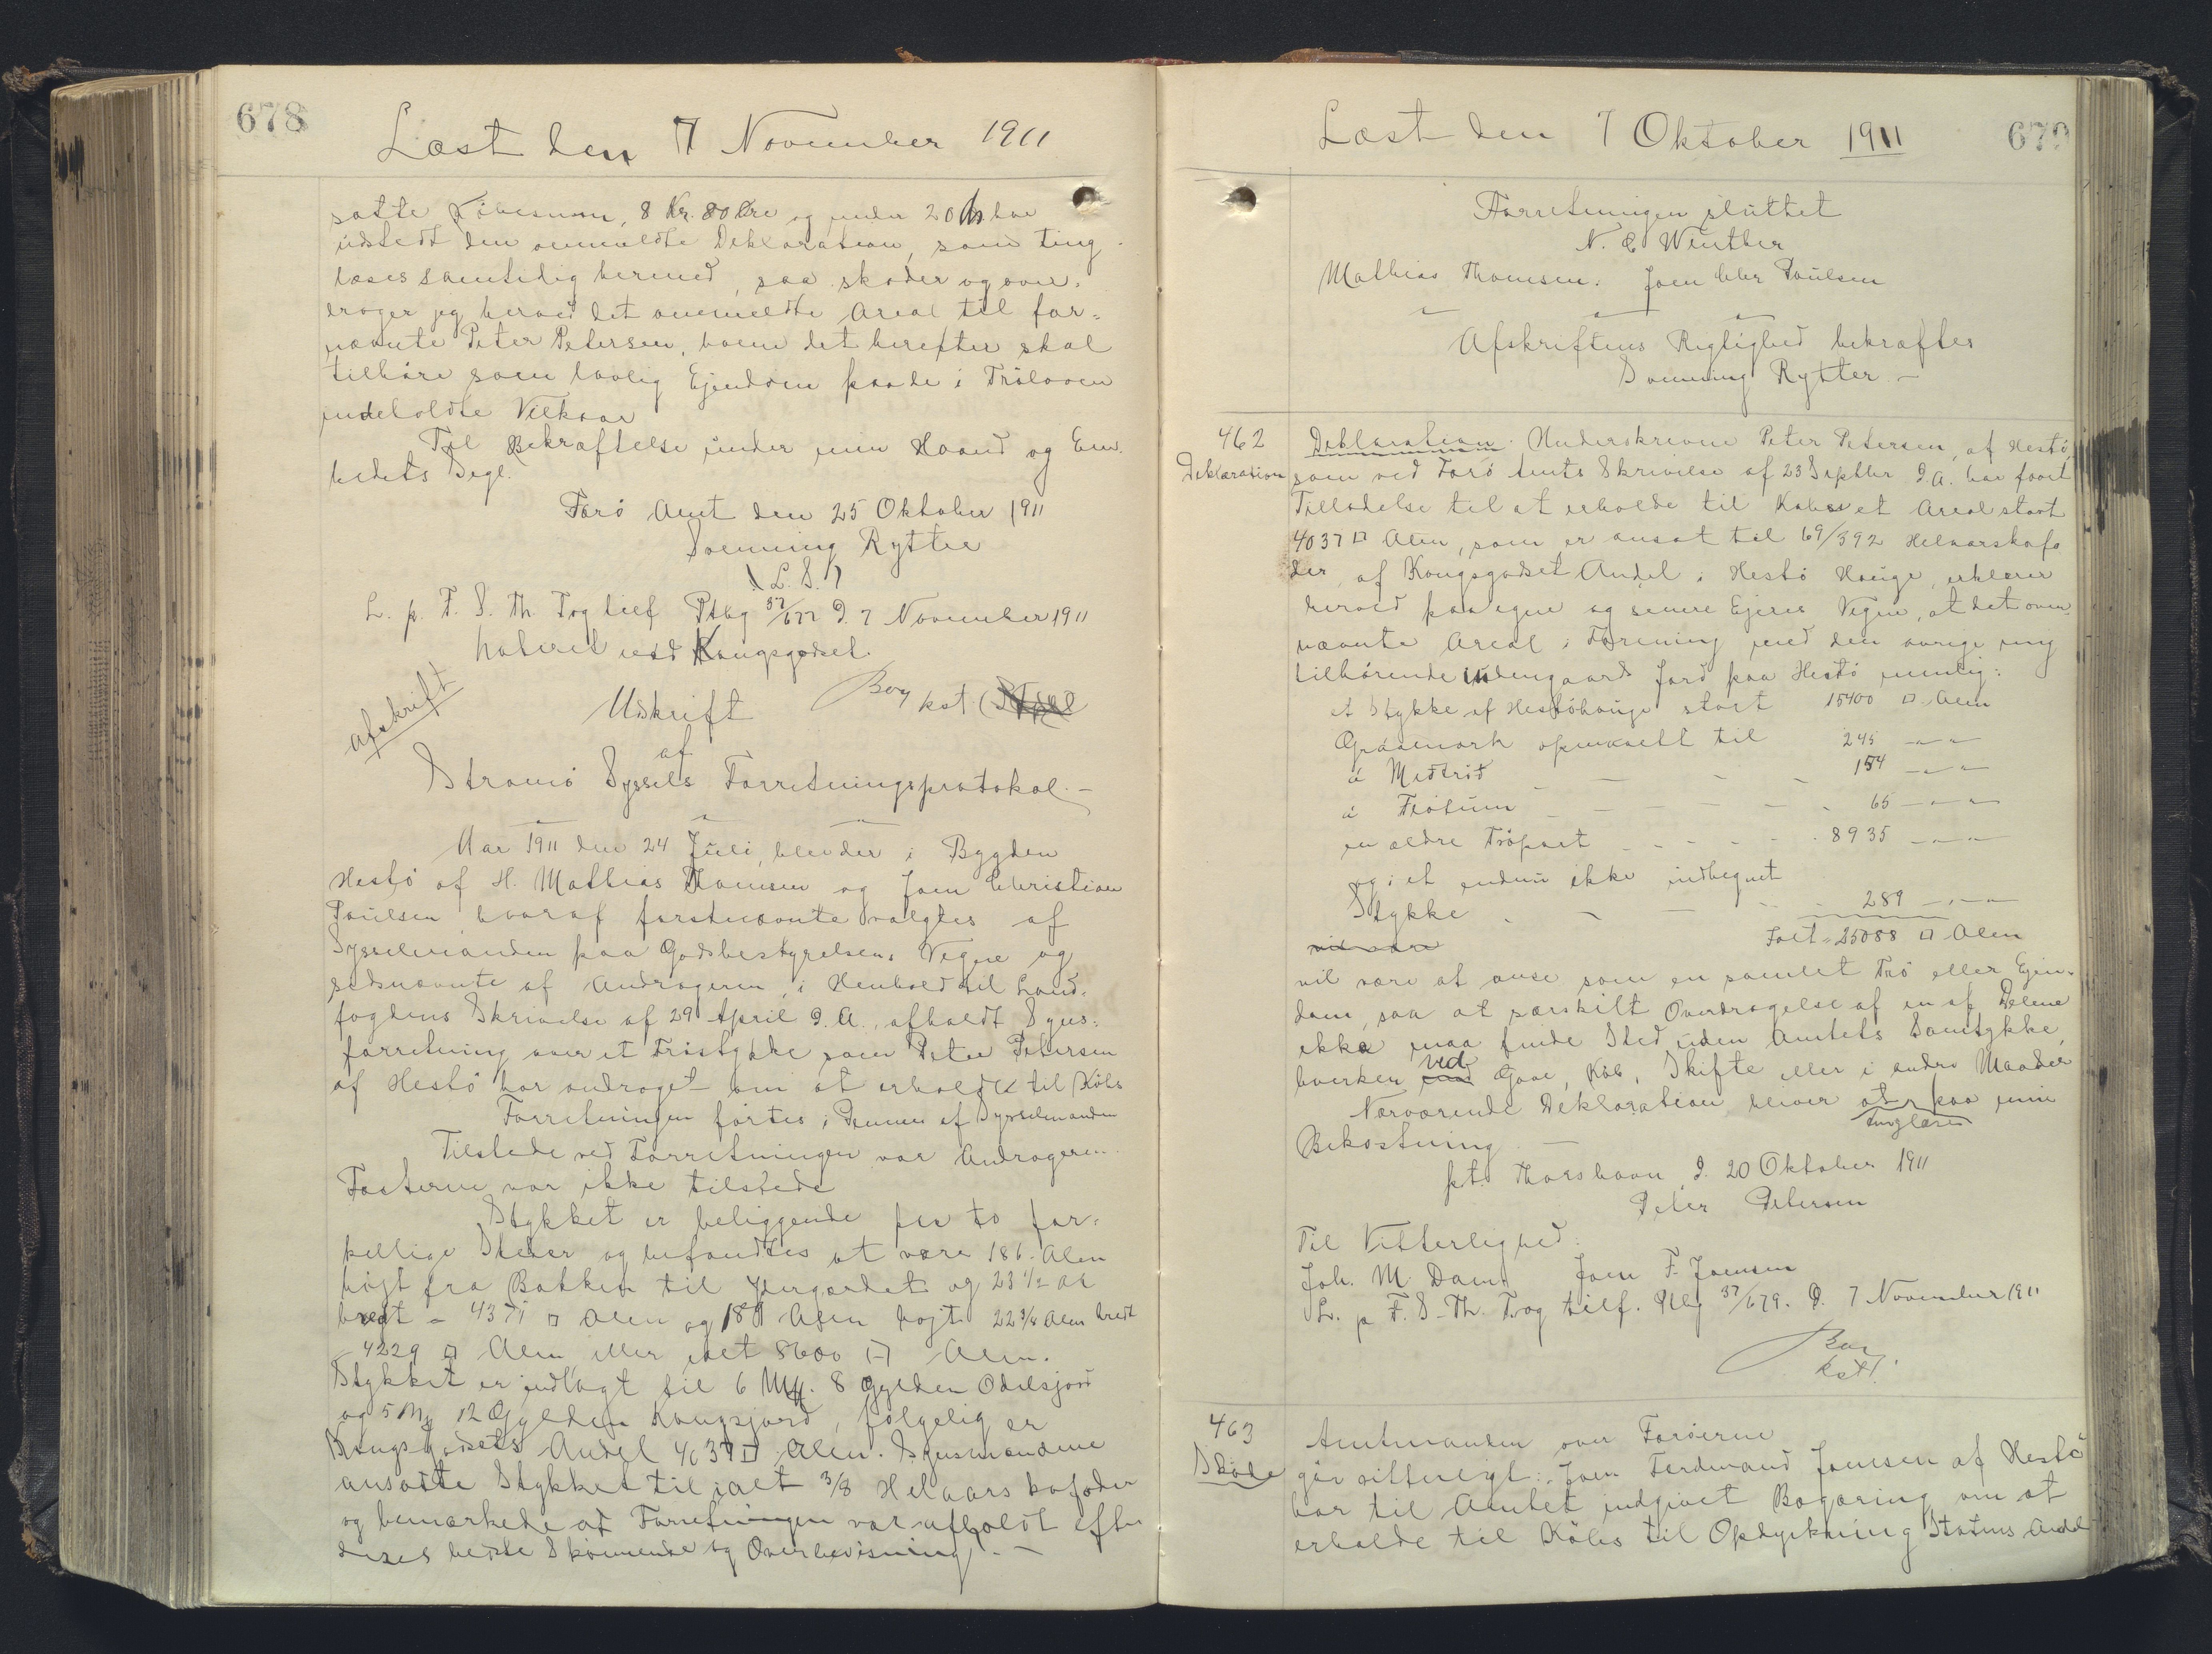 678
Læst den 7 November 1911
satte Købesum, 8 Kr. 80 Øre og under 20 ds har
udstedt den ommeldte Deklaration, som ting-
læses samtidig hermed, saa skøder og over-
drager jeg herved det ommeldte Areal til for-
nævnte Peter Petersen, hvem det herefter skal
tilhøre som lovlig Ejendom paa de i Trøloven
indeholdte Vilkaar
Til Bekræftelse under min Haand og Em-
bedets Segl.
Færø Amt den 25 Oktober 1911
Svenning Rytter
(L. S.)
L. p. F. S. Th. Prog tilf Ptbg 37/677 D. 7 November 1911
Noteret ved Kongsgodset.
Bay kst
afskrift
Udskrift
af
Strømø Syssels Forretningsprotokol. -
Aar 1911 den 24 Juli, blev der i Bygden
Hestø af H. Mathias Thomsen og Joen Christian
Poulsen hvoraf førstnævnte valgtes af
Sysselmanden paa Godsbestyrelsens Vegne og
sidsnævnte af Andrageren, i Henhold til Land-
fogdens Skrivelse af 29 April d. A., afholdt Syns-
forretning over et Trøstykke som Peter Petersen
af Hestø har andraget om at erholde til Købs
Forretningen førtes i Pennen af Sysselmanden
Tilstede ved Forretningen var Andrageren.
Fæsterne var ikke tilstede
Stykket er beliggende paa to for-
kellige Steder og befandtes at være 186 Alen
højt fra Bakken til Ydergærdet og 23 1/2 Al
bredt = 4371 □ Alen og 189 Alen højt 22 3/8 Alen bredt
- 4229 □ Alen eller ialt 8600 □ Alen.
Stykket er indlagt til 6 Mk. 8 Gylden Odelsjord
og 5 Mk 12 Gylden Kongsjord, følgelig er
Kongsgodsets Andel 4037 □ Alen. Synsmændene
ansatte Stykket til ialt 3/8 Helaars kofoder
og bemærkede at Forretningen var afholdt efter
deres bedste Skønnende og Overbevisning. -
Læst den 7 Oktober 1911
679
Forretningen sluttet
N. C. Winther
Mathias Thomsen. Joen Chr Poulsen
Afskriftens Rigtighed bekræftes
Svenning Rytter -
462
Deklaration
Deklaration. Underskrevne Peter Petersen, af Hestø,
som ved Færø Amts Skrivelse af 23 Septbr d. A. har faaet
Tilladelse til at erholde til Købs et Areal stort
4037 □ Alen, som er ansat til 69/392 Helaarskofo
der, af Kongsgodset Andel i Hestø Hauge, erklærer
herved paa egne og senere Ejeres Vegne, at det oven
nævnte Areal i Forening med den øvrige mig
tilhørende indengaards Jord paa Hestø nemlig:
et Stykke af Hestøhauge stort 15400 □ Alen
Græsmark opmaalt til 245 - " -
á Medtrøð 154 - " -
á Fløtum 65 - " -
en ældre Trøpart 8935 - " -
og i et endnu ikke indhegnet
Stykke 289 - " -
vil være
Ialt = 25088 □ Alen
vil være at anse som en samlet Trø eller Ejen-
dom, saa at særskilt Overdragelse af en af Delene
ikke maa finde Sted uden Amtets Samtykke,
hverken ved Gave, Køb, Skifte eller i andre Maader
Nærværende Deklaration bliver at paa min
tinglæse
Bekostning. -
pt. Thorshavn, d. 20 Oktober 1911
Peter Petersen
Til Vitterlighed:
Joh. M. Dam. Joen F. Joensen
L. p F. S. Th. Prog tilf. Ptbg 37/679. D. 7 November 1911
Bay
kst.
463
Skøde
Amtmanden over Færøerne
gør vitterligt: Joen Ferdinand Joensen af Hestø
har til Amtet indgivet Begæring om at
erholde til Købs til Opdyrkning Statens Andel